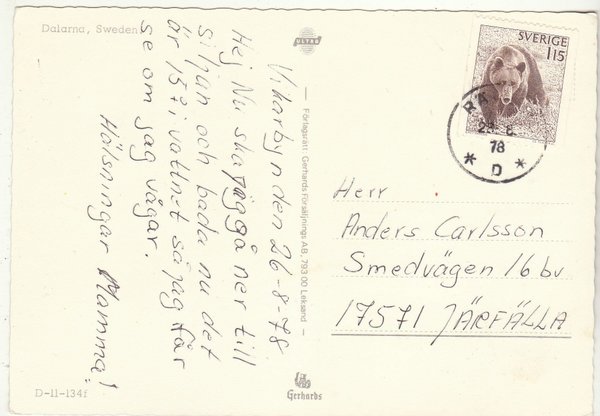 Dalarna, Sweden
ULTRA
Vikarbyn den 26-8-78
Hej Nu ska jag gå ner till
siljan och bada nu det
är 15 i vattnet så jag får
se om jag vågar.
Hälsningar Mamma!
Förlagsrätt: Gerhards Försäljnings AB, 793 00 Leksand
SVERIGE
115
78
D
Herr
Anders Carlsson
Smedvägen 16 bv
17571 JÄRFÄLLA
D-11-134f
Gerhards